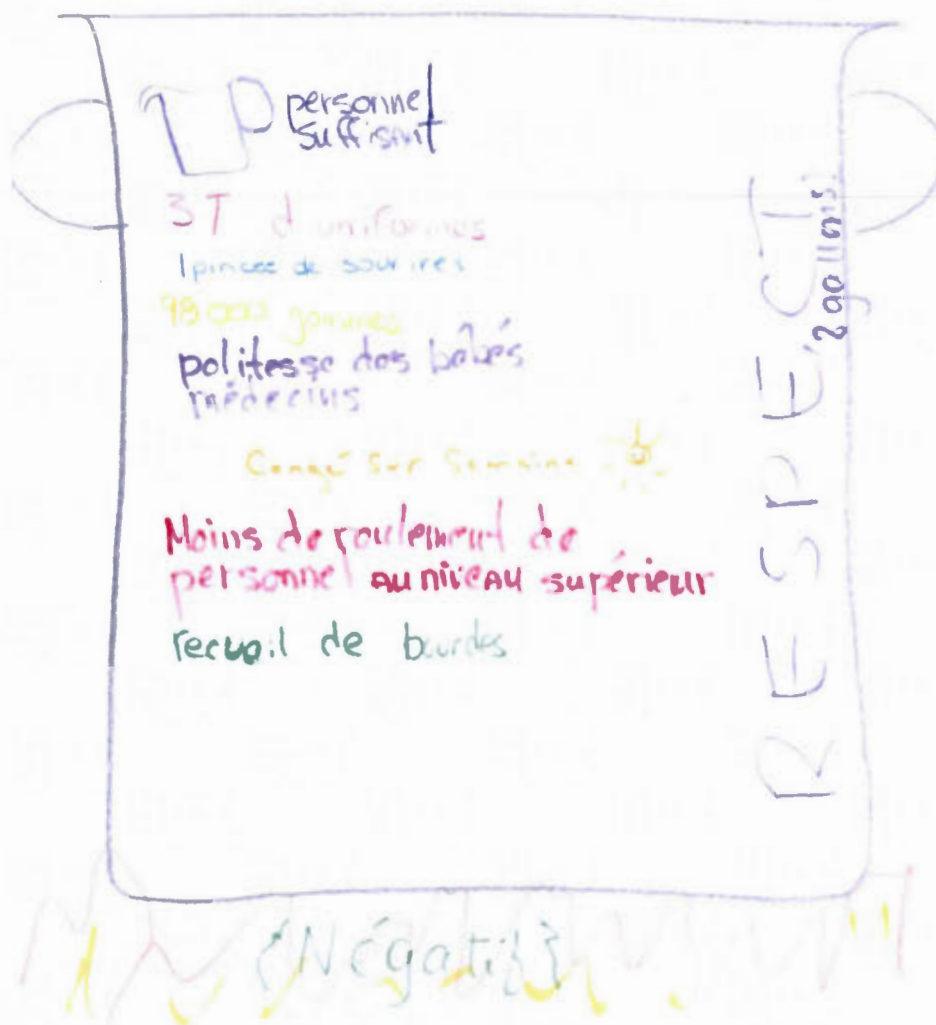 personnel
suffisant
3T d'uniformes
1 pincée de sourires
98 000 gammes
politesse des bébés
médecins
Congé sur semaine
Moins de roulement de
personnel au niveau supérieur
recueil de bourdes
RESPECT
2 gallons
{Négatif}